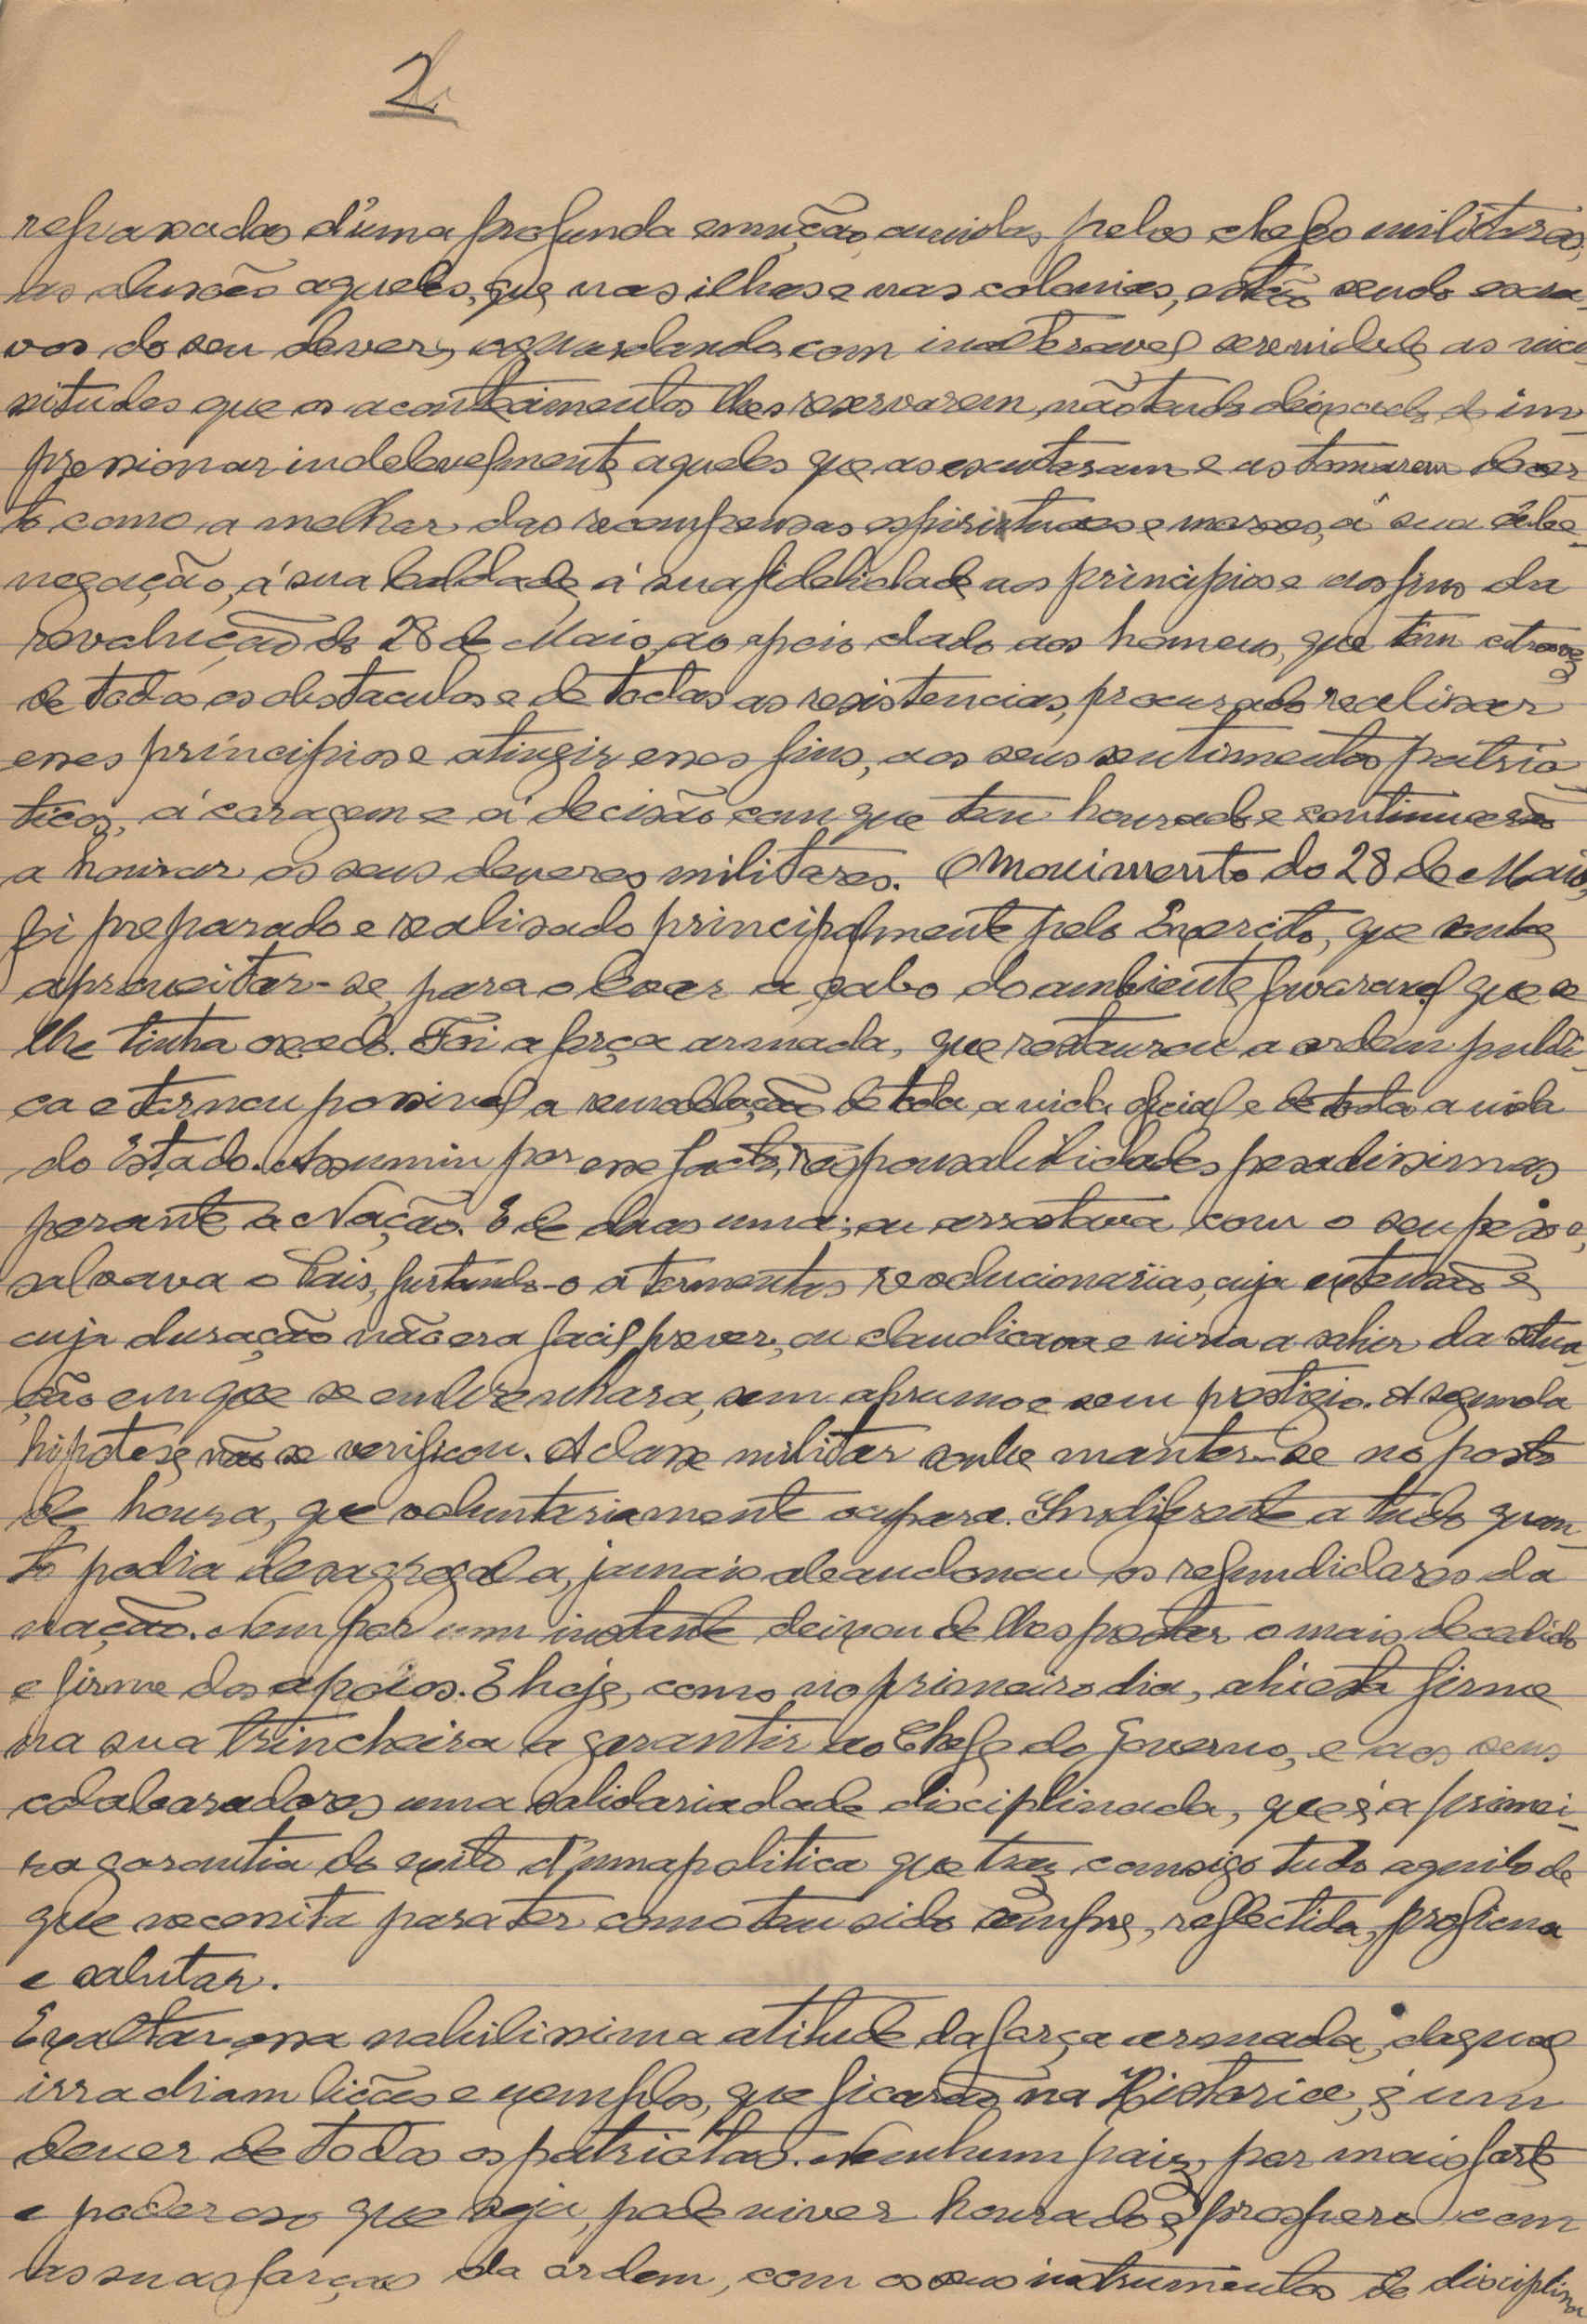 2
repassadas d'uma profunda emoção, ouvidas pelos chefes militares,
as alusões aqueles, que nas ilhas e nas colonias, estão sendo escra-
vos do seu dever, aguardando com inalteravel serenidade as vicis-
situdes que os acontecimentos lhes reservarem, não tendo deixado de im-
pressionar indelevelmente aqueles que as escutaram e as tomaram decer-
to como a melhor das recompensas espirituaes e moraes, á sua abne-
negação, á sua lealdade, á sua fidelidade aos principios e aos fins da
revolução do 28 de Maio, ao apoio dado aos homens, que têm atravez
de todos os obstaculos e de todas as resistencias, procurado realisar
esses princípios e atingir esses fins, aos seus sentimentos patrio-
ticos, á coragem e á decisão com que tem honrado e continuarão
a honrar os seus deveres militares. O Movimento do 28 de Maio,
foi preparado e realisado principalmente pelo Exercito, que soube
aproveitar-se, para o levar a cabo do ambiente favoravel que se
lhe tinha creado. Foi a força armada, que restaurou a ordem publi-
ca e tornou possivel a remodelação de toda a vida oficial e de toda a vida
do Estado. Assumiu por esse facto, responsabilidades pesadissimas
perante a Nação. E de duas uma; ou arrostava com o seu peso e,
salvava o Pais, furtando-o a tormentas revolucionarias, cuja extensão e
cuja duração não era facil prever, ou claudicava e viria a sahir da situa-
ção em que se embrenhara, sem aprumo e sem prestigio. A segunda
hipotese não se verificou. A classe militar soube manter-se no posto
de honra, que voluntariamente ocupara. Indiferente a tudo quan-
to podia desagrega-la, jamais abandonou os refundidores da
nação. Nem por um instante deixou de lhes prestar o mais decedido
e firme dos apoios. E hoje, como no primeiro dia, ahi está firme
na sua trincheira a garantir ao Chefe do Governo, e aos seus
colaboradores uma solidariadade disciplinada, que é a primei-
ra garantia do exito d'uma politica que traz comsigo tudo aquilo de
que necessita para ter como tem sido sempre, reflectida, proficua
e salutar.
Exaltar essa nobilissima atitude da força armada, da qual
irradiam lições e exemplos, que ficarão na Historia, é um
dever de todos os patriotas. Nenhum paiz, por mais forte
e poderoso que seja, pode viver honrado e prospero sem
as suas forças da ordem, com os seus instrumentos de disciplina